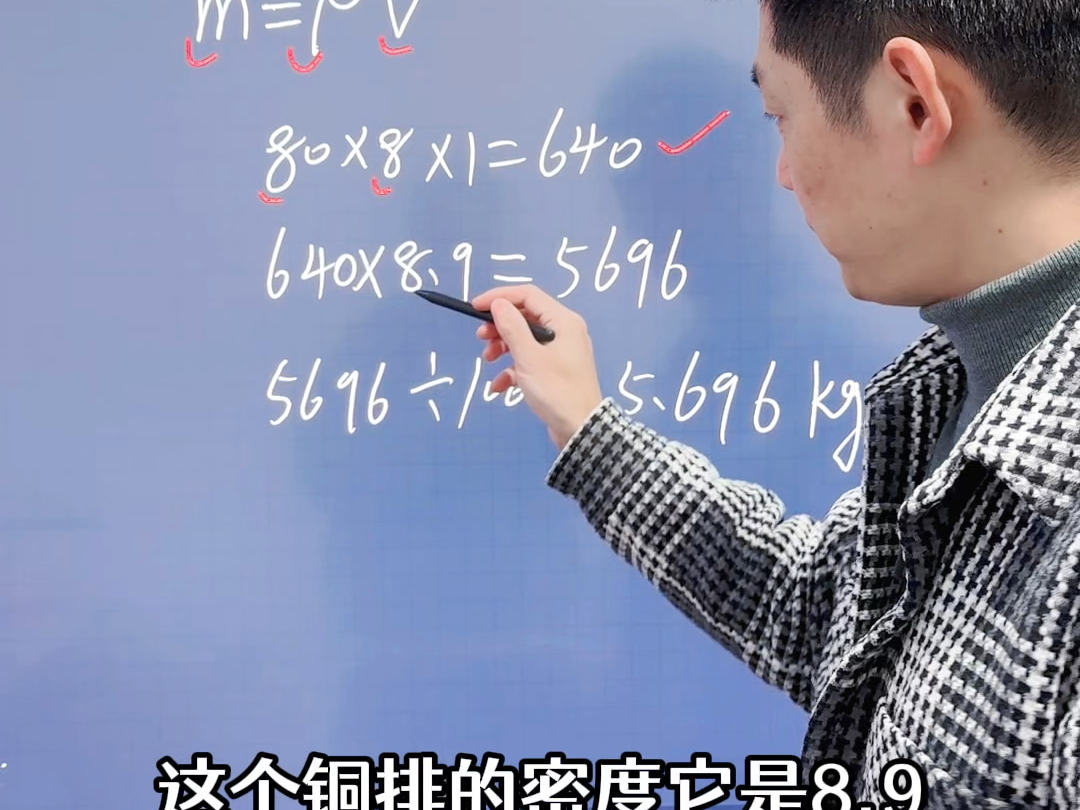 m=ρV
80×8×1=640
640×8.9=5696
5696÷10 5.696kg
这个铜排的密度它是8.9